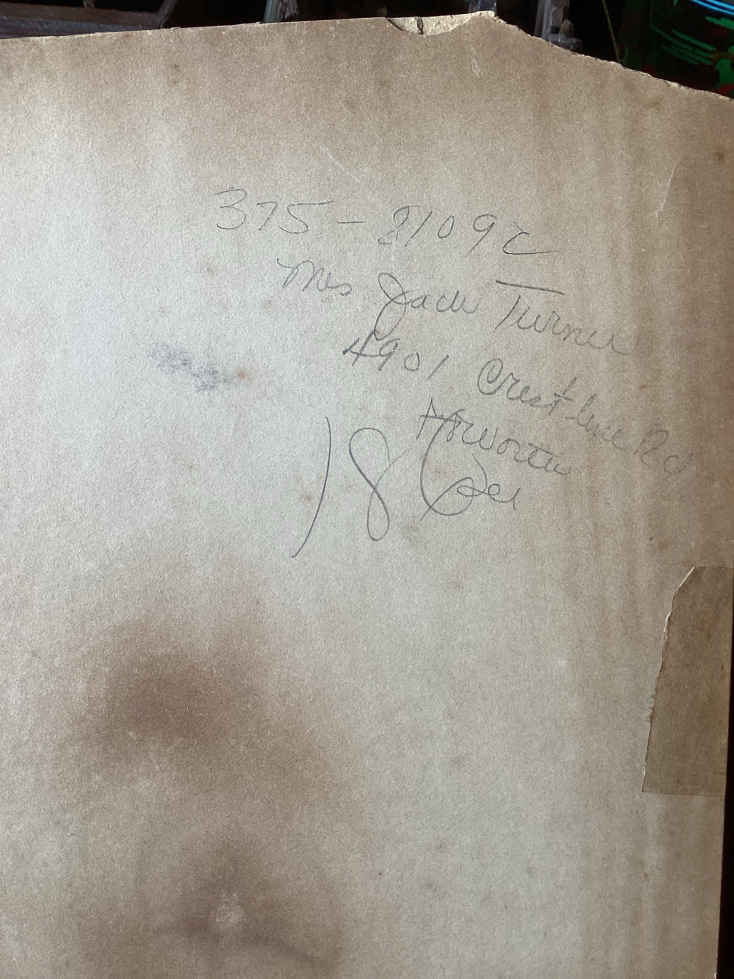 375-8109C
Mrs Jack Turner
4901 Crestline Rd
Ft Worth
186